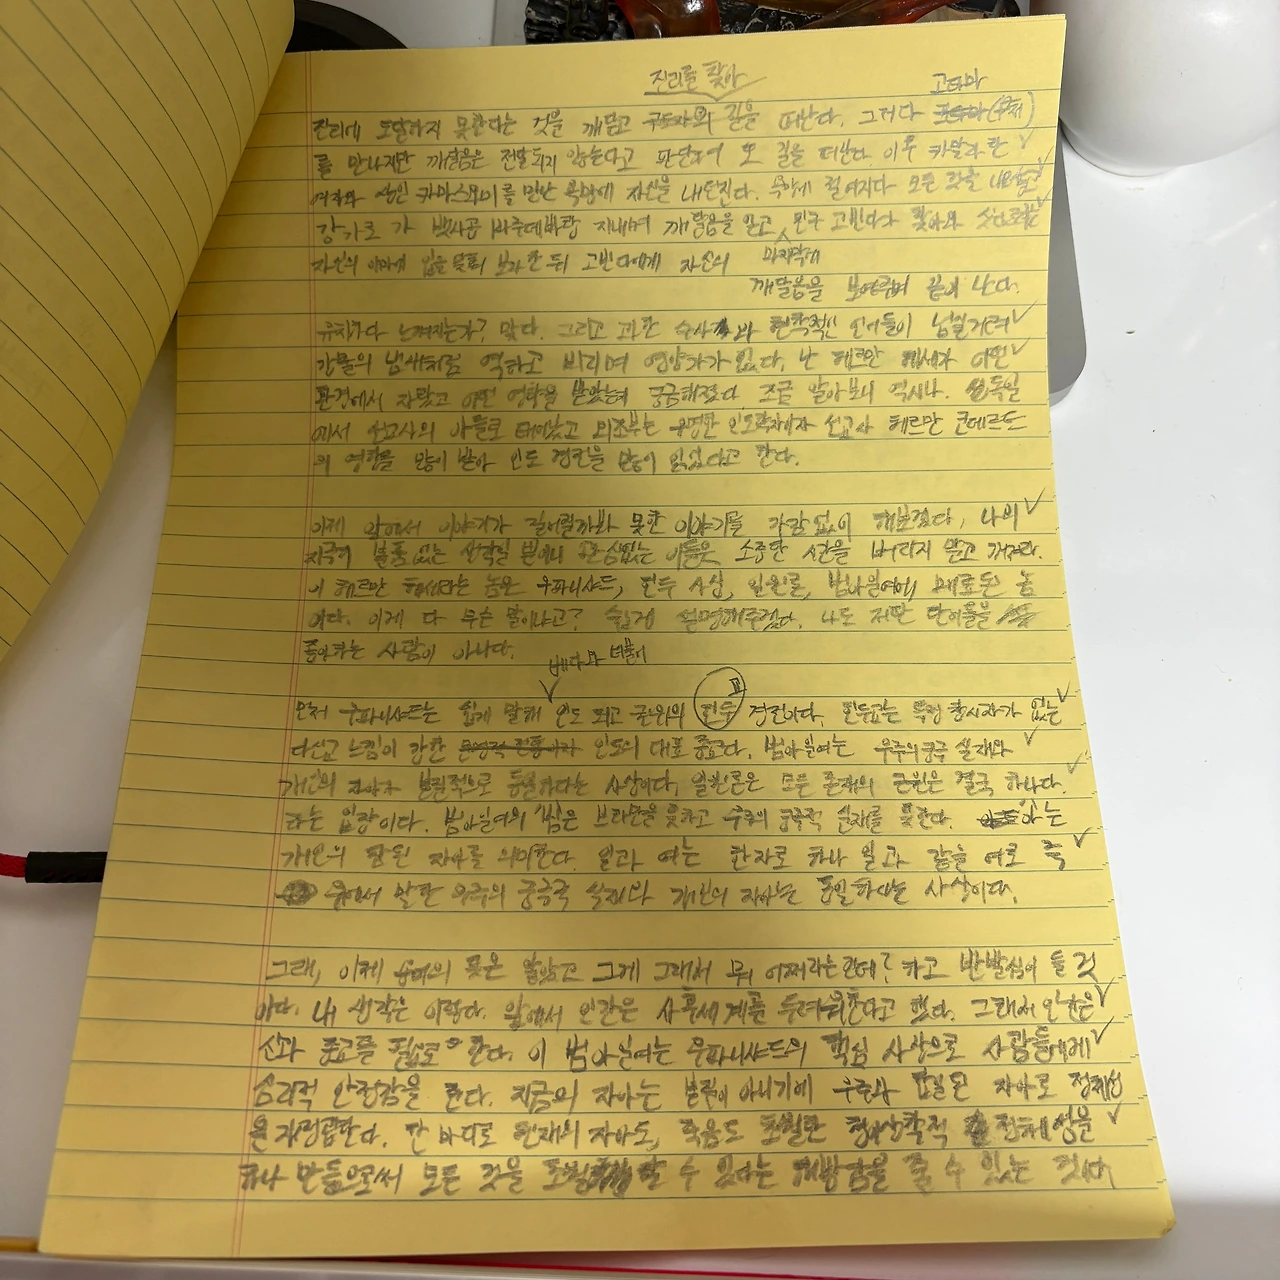 진리를 찾아
진리에 도달하지 못한다는 것을 깨닫고 구도자의 길을 떠난다. 그러다 고타마 (부처)
를 만나지만 깨달음은 전달되지 않는다고 판단하여 또 길을 떠난다. 이후 카말라란
여자와 상인 카마스와미를 만난 속세에 자신을 내던진다. 찌들어지다 모든 것을
강가로 가 뱃사공 바주데바랑 지내며 깨달음을 얻고 친구 고빈다가 찾아와
마지막에
자신의 이마에 입을 맞춰 보라 한 뒤 고빈다에게 자신의
깨달음을 보여주며 끝이 난다.
유치하다 느껴지는가? 맞다. 그리고 과한 수사와 현학적인 언어들이 넘실거려
강물의 냄새처럼 역하고 비리며 영양가가 없다. 난 헤르만 헤세가 어떤
환경에서 자랐고 어떤 영향을 받았는지 궁금해졌다 조금 알아보니 역시나. 독일
에서 선교사의 아들로 태어났고 외조부는 유명한 인도학자이자 선교사 헤르만 군데르트
의 영향을 많이 받아 인도 경전을 많이 읽었다고 한다.
이제 앞에서 이야기가 길어질까봐 못한 이야기를 가감없이 해보겠다. 나의
지극히 볼품없는 생각일 뿐이니 관심없는 이들은 소중한 시간을 버리지 말고 꺼져라.
이 헤르만 헤세라는 놈은 우파니샤드, 힌두 사상, 일원론, 범아일여에 매료된 놈
이다. 이게 다 무슨 말이냐고? 쉽게 설명해주겠다. 나도 저딴 단어들을
좋아하는 사람이 아니다.
베다와 더불어
먼저 우파니샤드는 쉽게 말해 인도 최고 권위의 힌두교 경전이다. 힌두교는 특정 창시자가 없는
다신교 느낌이 강한 인도의 대표 종교다. 범아일여는 우주의 궁극 실재와
개인의 자아가 본질적으로 동일하다는 사상이다. 일원론은 모든 존재의 근원은 결국 하나다.
라는 입장이다. 범아일여의 '범'은 브라만을 뜻하고 우주의 궁극적 실재를 뜻한다. 아는
개인의 참된 자아를 의미한다 일과 여는 한자로 하나 일과 같을 여로 즉
위에서 말한 우주의 궁극적 실재와 개인의 자아는 동일하다는 사상이다.
그래, 이제 용어의 뜻은 알았고 그게 그래서 뭐 어쩌라는건데? 하고 반발심이 들 것
이다. 내 생각은 이렇다. 앞에서 인간은 사후세계를 두려워한다고 했다. 그래서 인간은
신과 종교를 필요로 한다. 이 범아일여는 우파니샤드의 핵심 사상으로 사람들에게
심리적 안전감을 준다. 지금의 자아는 본질이 아니기에 우주와 동일된 자아로 정체성
을 재정립한다. 한 마디로 현재의 자아도, 죽음도 초월한 형이상학적 정체성을
하나 만듦으로써 모든 것을 초월할 수 있다는 해방감을 줄 수 있는 것이다